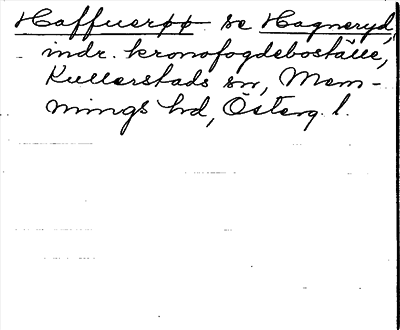 Haffuerøø se Hagneryd,
indr. kronofogdeboställe,
Kullerstads sn, Mem-
mings hd, Österg. l.